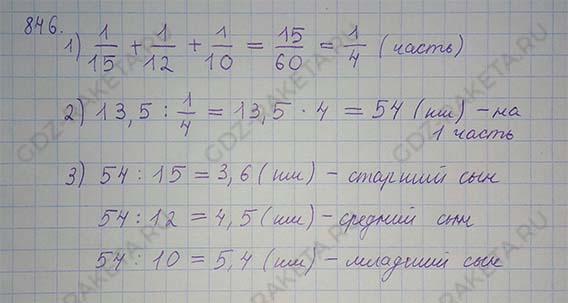 846.
1) 1/15 + 1/12 + 1/10 = 15/60 = 1/4 (часть)
2) 13,5 : 1/4 = 13,5 · 4 = 54 (км) – на
1 часть
3) 54 : 15 = 3,6 (км) – старший сын
54 : 12 = 4,5 (км) – средний сын
54 : 10 = 5,4 (км) – младший сын
GDZ-RAKETA.RU